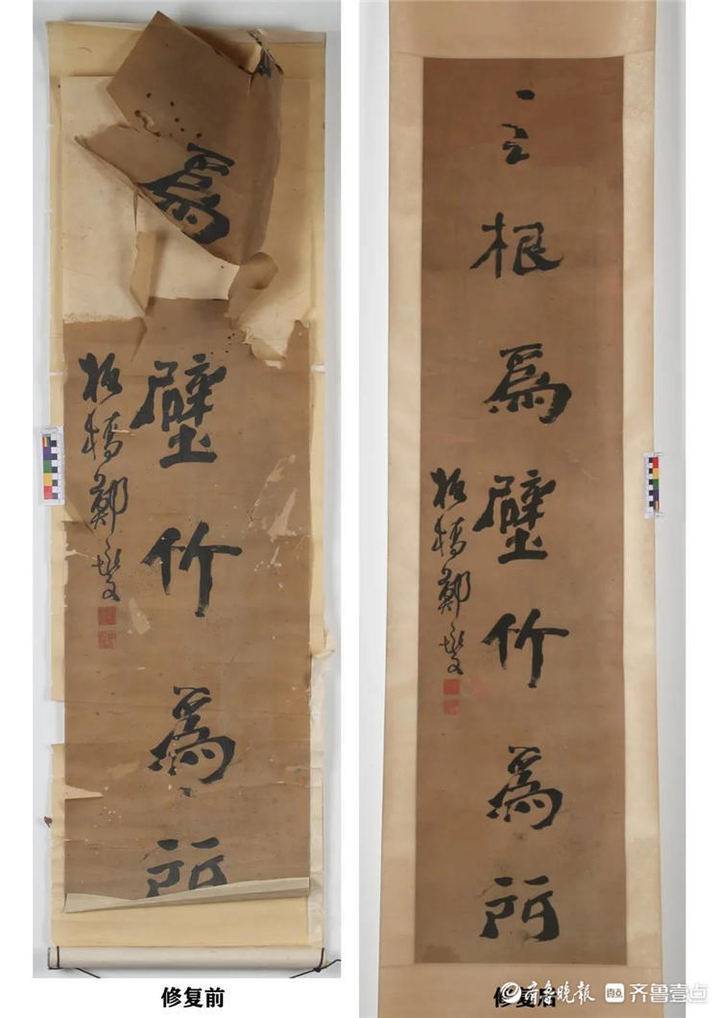 為壁竹為所
板橋鄭燮
修复前
云根為壁竹為所
板橋鄭燮
修复后
齐鲁晚报 壹点 齐鲁壹点